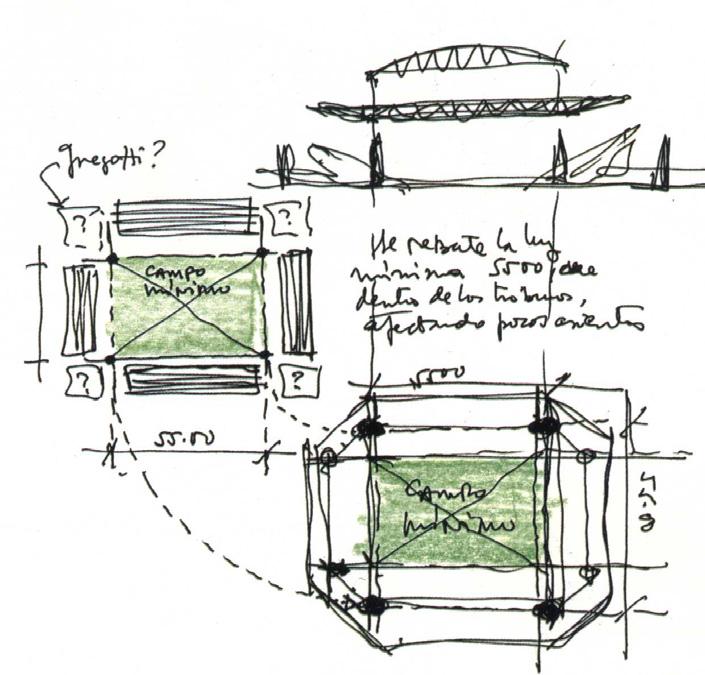 gregotti?
?
?
CAMPO
MÍNIMO
?
?
55.00
Se rebate la luz
mínima 5500, cae
dentro de las tribunas,
afectando pocos asientos
5500
CAMPO
MÍNIMO